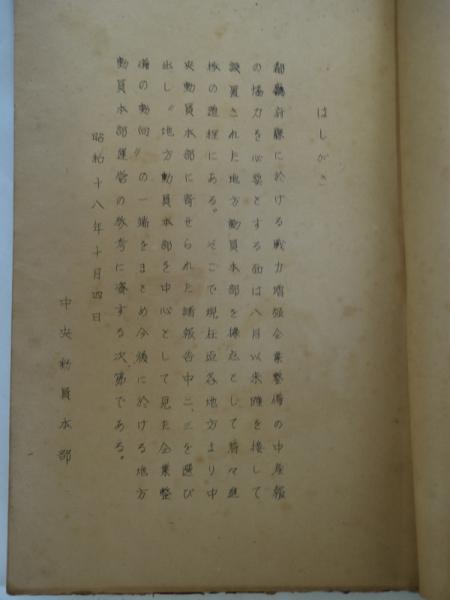 はしがき
都庁府県に於ける戦力増強企業整備の中産報
の協力を必要とする面は八月以来踵を接して
設置された地方動員本部を拠点として着々進
捗の過程にある。そこで現在迄各地方より中
央動員本部に寄せられた諸報告中二、三を選び
出し“地方動員本部を中心として見た企業整
備の動向”の一端をまとめ今後に於ける地方
動員本部運営の参考に資する次第である。
昭和十八年十月四日
中央動員本部